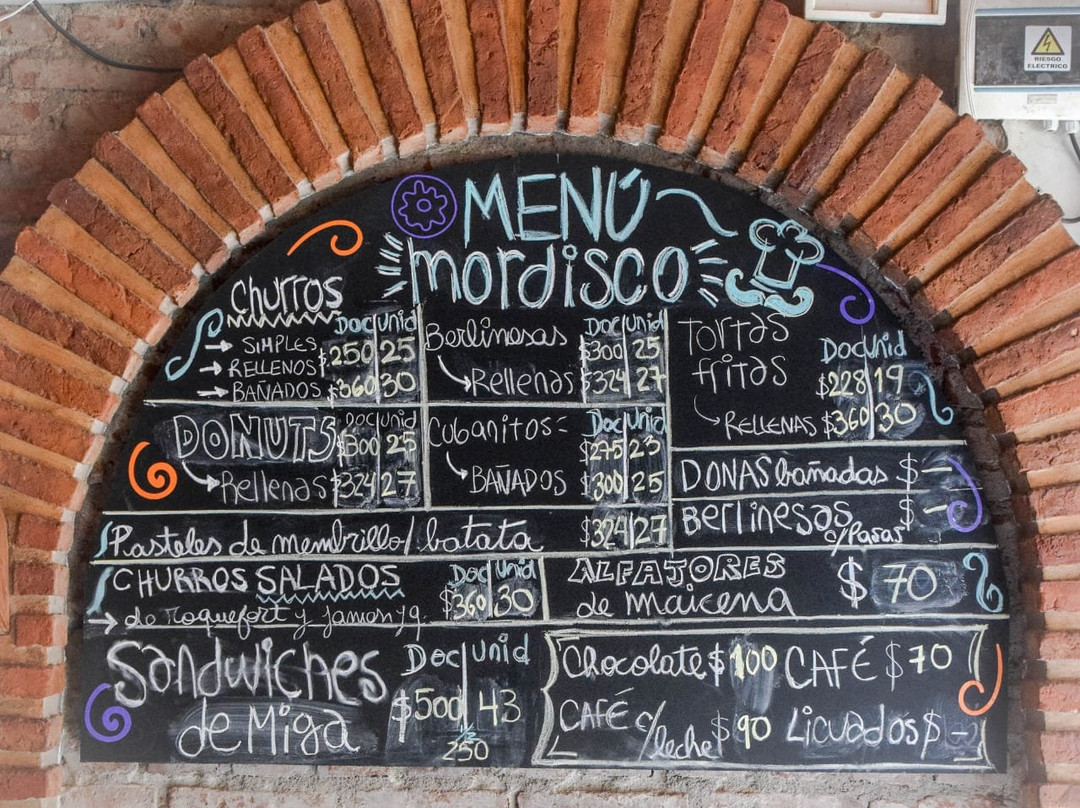 RIESGO
ELECTRICO
MENÚ
mordisco
Churros
Doc Unid
→ SIMPLES $250 25
→ RELLENOS
→ BAÑADOS $360 30
Berlinesas
Doc Unid
$300 25
Rellenas $324 27
Tortas
fritas
Doc Unid
$228 19
RELLENAS $360 30
DONUTS
Doc Unid
$300 25
Rellenas $324 27
Cubanitos=
Doc Unid
$275 23
BAÑADOS $300 25
DONAS bañadas $ –
Berlinesas $ –
c/Pasas
Pasteles de membrillo/batata $324 27
CHURROS SALADOS
Doc Unid
$360 30
→ de roquefort y Jamon yq.
ALFAJORES
de maicena $ 70
Sandwiches
de Miga
Doc Unid
$500 43
1/2
250
Chocolate $100 CAFÉ $70
CAFÉ c/leche $90 Licuados $ –